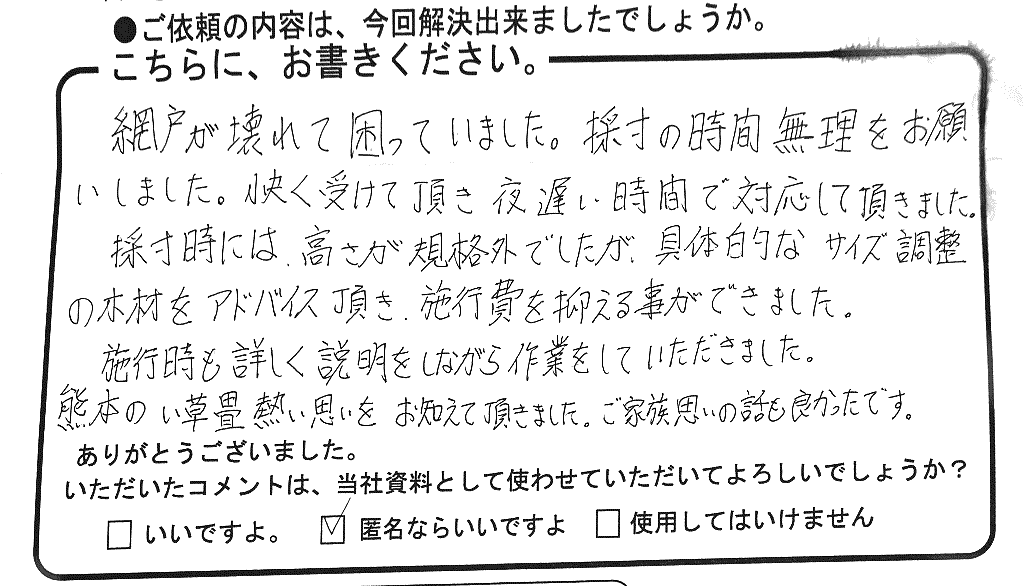 ●ご依頼の内容は、今回解決出来ましたでしょうか。
こちらに、お書きください。
網戸が壊れて困っていました。採寸の時間無理をお願
いしました。快く受けて頂き夜遅い時間で対応して頂きました。
採寸時には、高さが規格外でしたが、具体的なサイズ調整
の木材をアドバイス頂き、施行費を抑える事ができました。
施行時も詳しく説明をしながら作業をしていただきました。
熊本のい草畳熱い思いをお知えて頂きました。ご家族思いの話も良かったです。
ありがとうございました。
いただいたコメントは、当社資料として使わせていただいてよろしいでしょうか？
□ いいですよ。 ☑ 匿名ならいいですよ □ 使用してはいけません